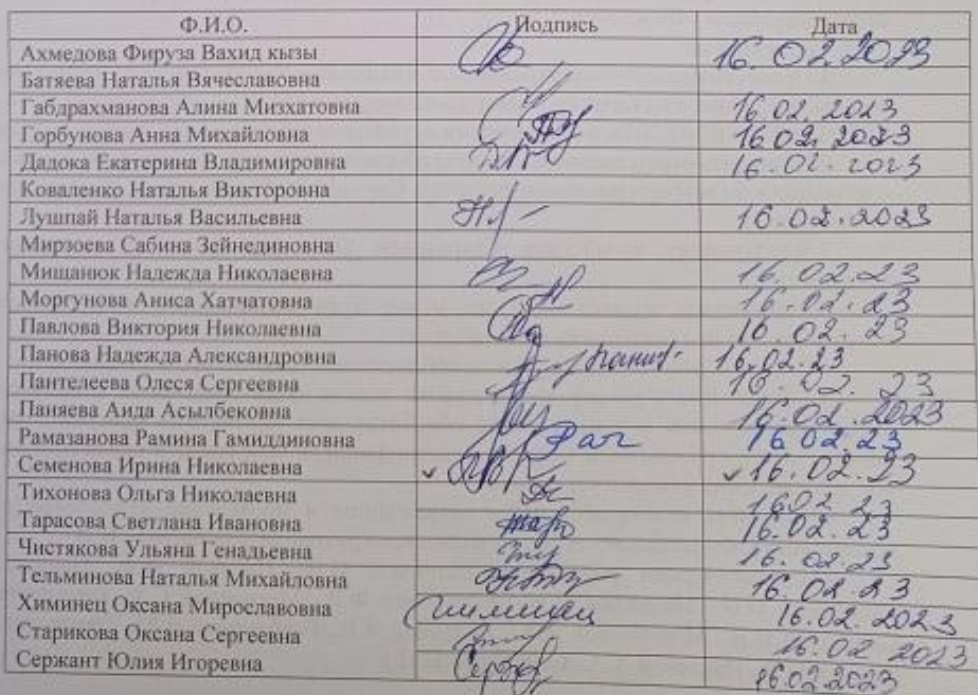 Ф.И.О. Подпись Дата
Ахмедова Фируза Вахид кызы 16.02.2023
Батяева Наталья Вячеславовна
Габдрахманова Алина Мизхатовна 16.02.2023
Горбунова Анна Михайловна 16.02.2023
Дадока Екатерина Владимировна 16.02.2023
Коваленко Наталья Викторовна
Лушпай Наталья Васильевна 16.02.2023
Мирзоева Сабина Зейнединовна
Мищанюк Надежда Николаевна 16.02.23
Моргунова Аниса Хатчатовна 16.02.23
Павлова Виктория Николаевна 16.02.23
Панова Надежда Александровна 16.02.23
Пантелеева Олеся Сергеевна 16.02.23
Паняева Аида Асылбековна 16.02.2023
Рамазанова Рамина Гамиддиновна 16.02.23
Семенова Ирина Николаевна 16.02.23
Тихонова Ольга Николаевна 16.02.23
Тарасова Светлана Ивановна 16.02.23
Чистякова Ульяна Генадьевна 16.02.23
Тельминова Наталья Михайловна 16.02.23
Химинец Оксана Мирославовна 16.02.2023
Старикова Оксана Сергеевна 16.02.2023
Сержант Юлия Игоревна 16.02.2023